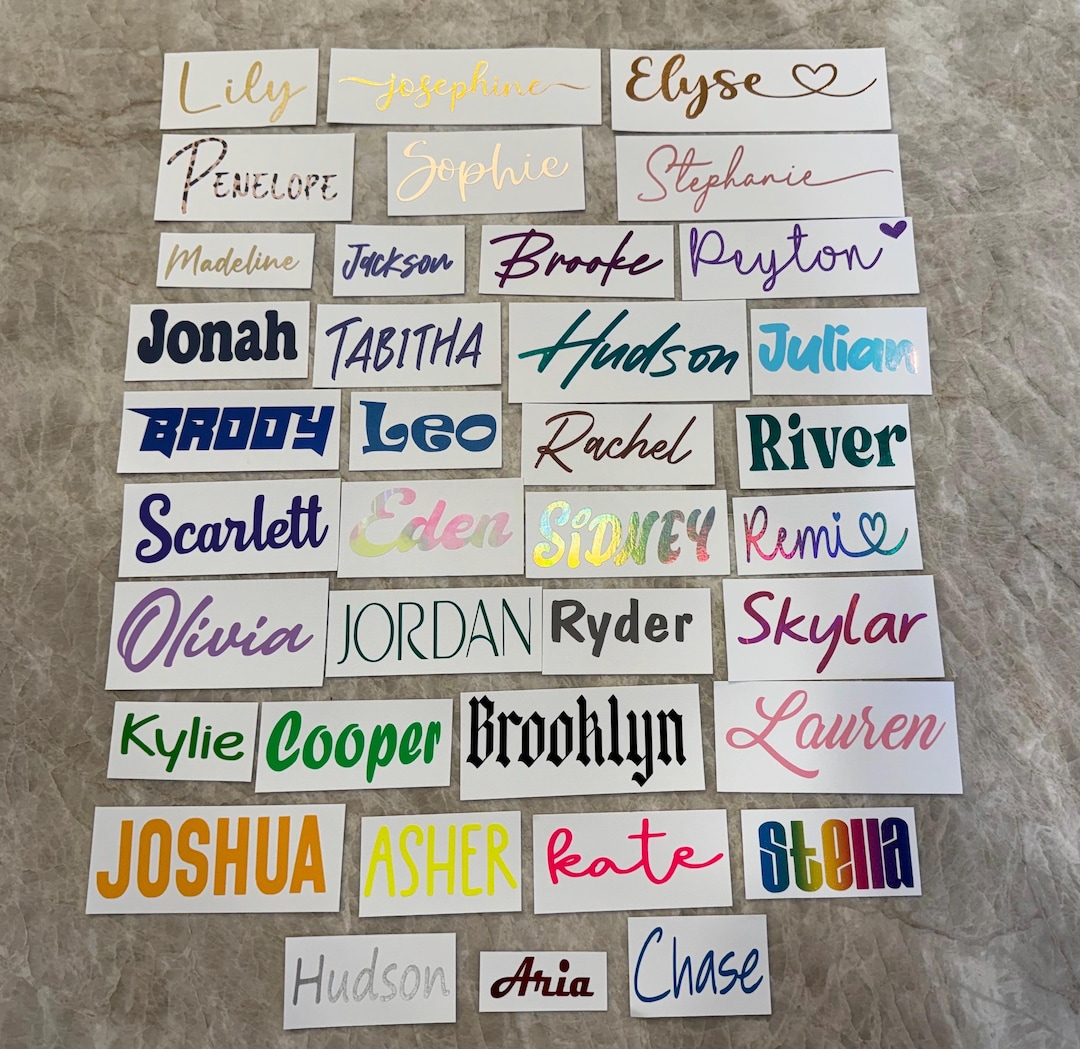 Lily josephine Elyse
PENELOPE Sophie Stephanie
Madeline Jackson Brooke Peyton
Jonah TABITHA Hudson Julian
BRODY Leo Rachel River
Scarlett Eden SiDNEY Remi
Olivia JORDAN Ryder Skylar
Kylie Cooper Brooklyn Lauren
JOSHUA ASHER kate Stella
Hudson Aria Chase